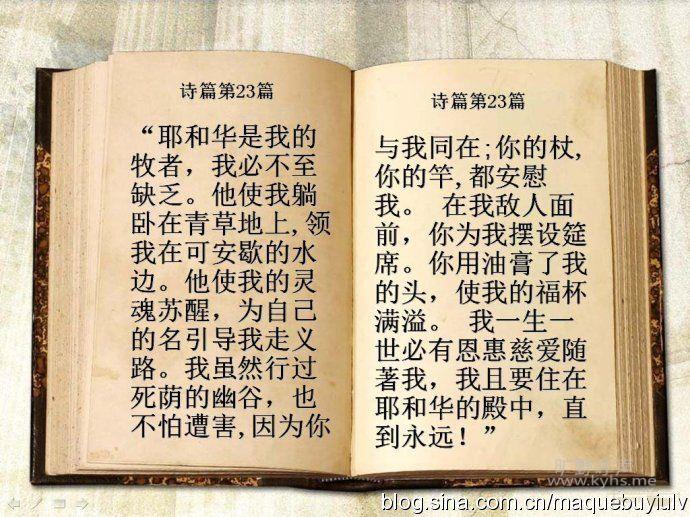 诗篇第23篇
“耶和华是我的
牧者，我必不至
缺乏。他使我躺
卧在青草地上,领
我在可安歇的水
边。他使我的灵
魂苏醒，为自己
的名引导我走义
路。我虽然行过
死荫的幽谷，也
不怕遭害,因为你
诗篇第23篇
与我同在;你的杖,
你的竿,都安慰
我。 在我敌人面
前，你为我摆设筵
席。你用油膏了我
的头，使我的福杯
满溢。 我一生一
世必有恩惠慈爱随
著我，我且要住在
耶和华的殿中，直
到永远！”
www.kyhs.me
blog.sina.com.cn/maquebuyiulv